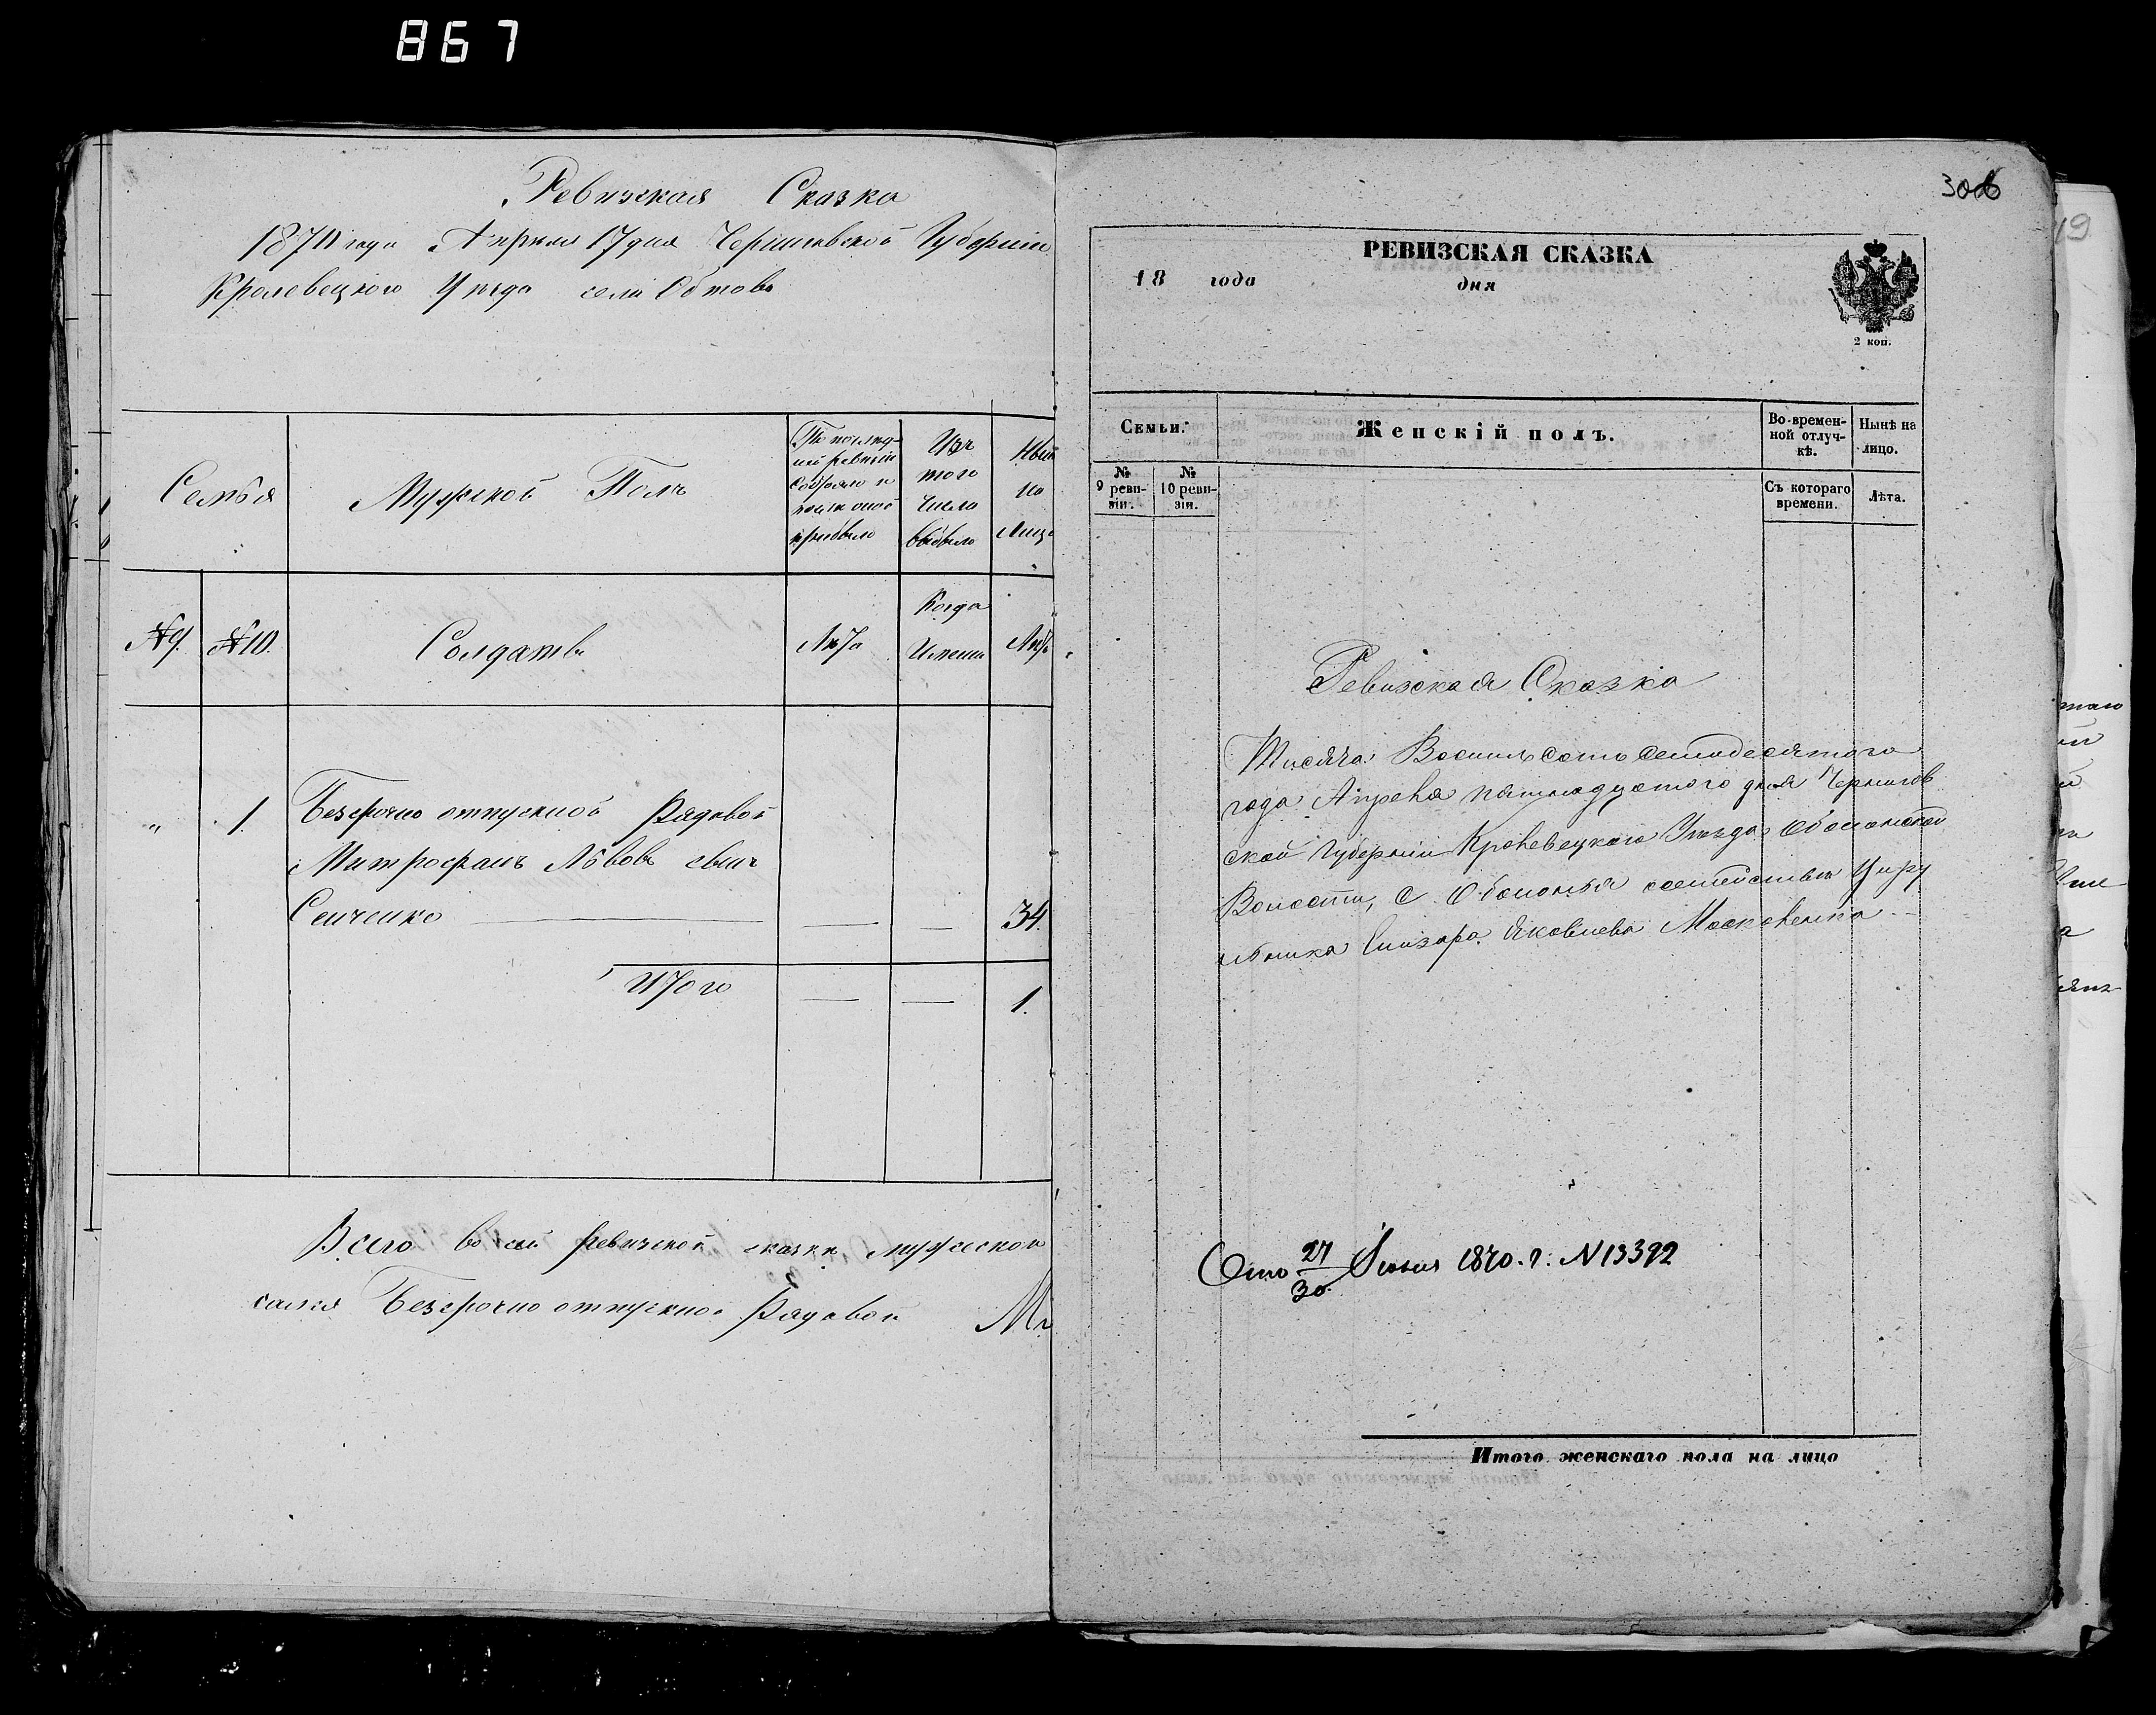 867
Ревизская Сказка
1870 года Апреля 17 дня Черниговской Губернии
Кролевецкого Уезда села Обтова
Семья
Мужской Полъ
По послед-
ней ревизіи
состояло и
после оной
прибыло
Изъ
того
числа
выбыло
Ныне
на
Лицо
№ 9.
№ 10.
Солдатъ
Лѣта
Когда
Именно
Лѣта
"
1.
Безсрочно отпускной Рядовой
Митрофанъ Львовъ сынъ
Сенченко
34.
Итого
1.
Всего во сей ревизской сказки мужеском
Безсрочно отпускной Рядовой
306
19
РЕВИЗСКАЯ СКАЗКА
18 года дня
2 коп.
Семьи.
Женскій полъ.
Во-времен-
ной отлуч-
кѣ.
Нынѣ на
лицо.
№
9 реви-
зіи.
№
10 реви-
зіи.
Съ котораго
времени.
Лѣта.
Ревизская Сказка
Тисяча Восимь сотъ семидесятого
года Апреля пятнадцатого дня Чернигов
ской Губерніи Кролевецкого Уезда Оболонской
Волости, С. Оболонья
Елизара Яковлева Московенка
Отъ 27/30 Іюня 1870. г: N 13392
Итого женскаго пола на лицо